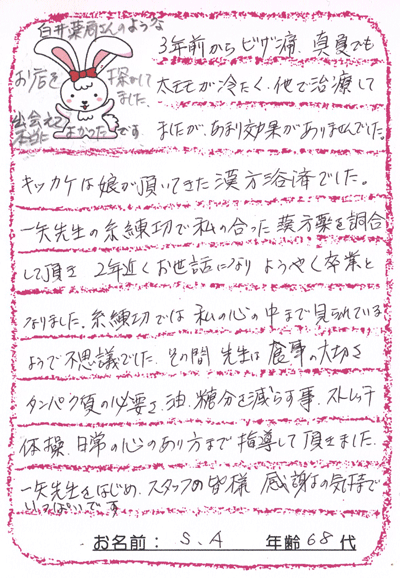 白井薬局さんのような
お店を探がして
ました
出会えて
本当によかったです
3年前からヒザ痛、真夏でも
太モモが冷たく、他で治療して
ましたが、あまり効果がありませんでした。
キッカケは娘が頂いてきた漢方浴済でした。
一矢先生の糸練功で私の合った漢方薬を調合
して頂き 2年近くお世話になり ようやく卒業と
なりました。糸練功では 私の心の中まで見られている
ようで不思議でした。その間 先生は 食事の大切さ
タンパク質の必要さ、油、糖分を減らす事、ストレッチ
体操、日常の心のあり方まで指導して頂きました。
一矢先生をはじめ、スタッフの皆様 感謝の気持で
いっぱいです
お名前: S、A 年齢 68代